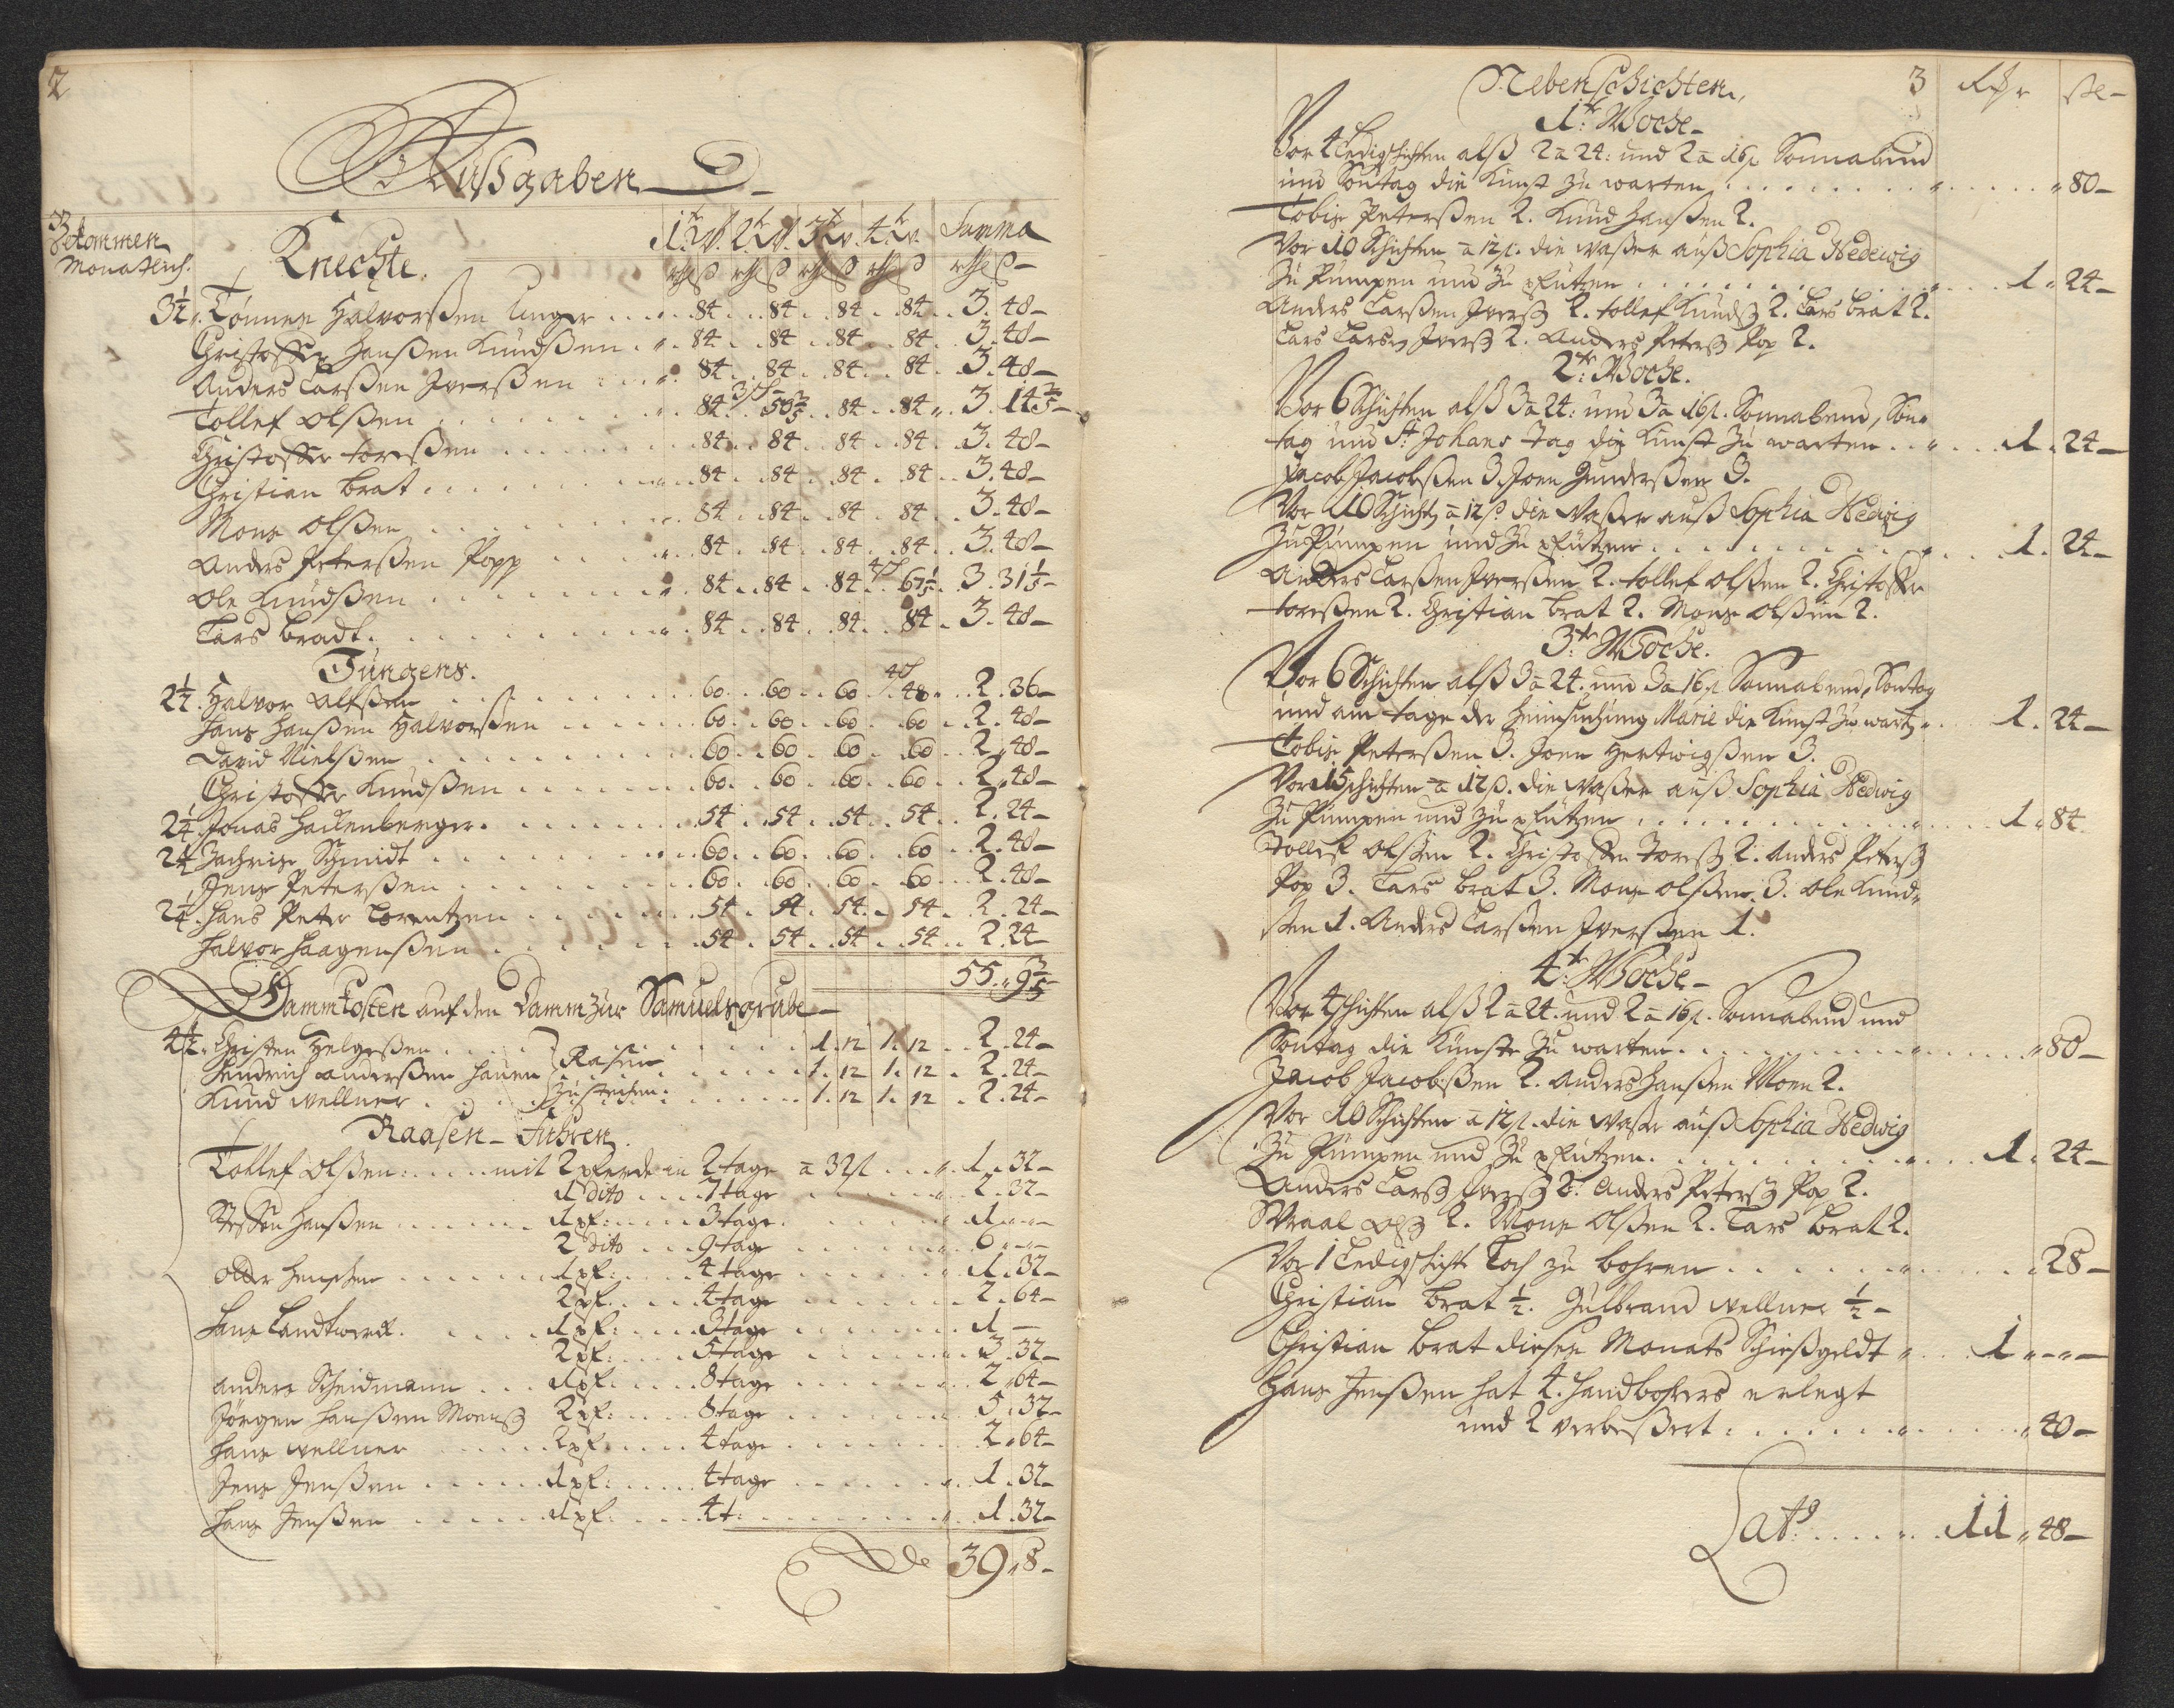 2
Außgaben
Bekommen Monatlich.
Knechte.
1te W. 2te W. 3te W. 4te W. Summa
rthl ß rthl ß rthl ß rthl ß rthl ß
3½. Tönnes Halvorßen Unger . . 84 . . 84 . . 84 . . 84 . . 3. 48
Christoffer Hanßen Knudßen . . 84 . . 84 . . 84 . . 84 . . 3. 48
Anders Larßen Iverßen . . 84 . . 84 . . 84 . . 84 . . 3. 48
Tollef Olßen . . 84 . . 3 sch 50 2/5 . . 84 . . 84 . . 3. 14 2/5
Christoffer Toreßen . . 84 . . 84 . . 84 . . 84 . . 3. 48
Christian Brat . . 84 . . 84 . . 84 . . 84 . . 3. 48
Mons Olßen . . 84 . . 84 . . 84 . . 84 . . 3. 48
Anders Peterßen Popp . . 84 . . 84 . . 84 . . 84 . . 3. 48
Ole Knudßen . . 84 . . 84 . . 84 . . 4 sch 67 1/5 . . 3. 31 1/5
Lars Bradt . . 84 . . 84 . . 84 . . 84 . . 3. 48
Jungens.
2½. Halvor Olßen . . 60 . . 60 . . 60 . . 4 sch 48 . . 2. 36
Hans Hanßen Halvorßen . . 60 . . 60 . . 60 . . 60 . . 2. 48
David Nielßen . . 60 . . 60 . . 60 . . 60 . . 2. 48
Christoffer Knudßen . . 60 . . 60 . . 60 . . 60 . . 2. 48
2¼. Jonas Hackenberger . . 54 . . 54 . . 54 . . 54 . . 2. 24
2½ Zachrias Schmidt . . 60 . . 60 . . 60 . . 60 . . 2. 48
Jens Peterßen . . 60 . . 60 . . 60 . . 60 . . 2. 48
2¼. Hans Peter Lorentzen . . 54 . . 54 . . 54 . . 54 . . 2. 24
Halvor Haagenßen . . 54 . . 54 . . 54 . . 54 . . 2. 24
55. 9 3/5
Dammkosten auf den Damm zur Samuelsgrube
4½. Christen Helgeßen . . Rasen . . 1. 12 1. 12 . . 2. 24
Hendrich Anderßen Hauen . . 1. 12 1. 12 . . 2. 24
Knud Wellner . . zu stechen. . . 1. 12 1. 12 . . 2. 24
Raasen-Fuhren.
Tollef Olßen . . mit 2 pferde in 2 tage a 32 ß . . 1. 32
1 dito . . 7 tage . . 2. 32
Steffen Hanßen . . 1 pf: . . 3 tage . . 1. -
2 dito . . 9 tage . . 6. -
. . 1 pf: . . 4 tage . . 1. 32
2 pf: . . 4 tage . . 2. 64
Hans Landtwerck . . 1 pf: . . 3 tage . . 1. -
2 pf: . . 5 tage . . 3. 32
Anders Scheidmann . . 1 pf: . . 8 tage . . 2. 64
Jörgen Hanßen Moenß 2 pf: . . 8 tage . . 5. 32
Hans Wellner . . 2 pf: . . 4 tage . . 2. 64
Jens Jenßen . . 1 pf: . . 4 tage . . 1. 32
Hans Jenßen . . 1 pf: . . 4 t: . . 1. 32
39. 8
Nebenschichten. 3 Rthr ße
1te Woche
Vor 4 Ledigschichten alß 2 a 24: und 2 a 16 ß Sonnabend
und Sontag die Kunst zu warten . . 80
Tobias Peterßen 2. Knud Hanßen 2.
Vor 10 Schichten a 12 ß. die Waßer auß Sophia Hedewig
zu Pumpen und zu pfützen . . 1. 24
Anders Larßen Iverß 2. Tollef Knudß 2. Lars Brat 2.
Lars Larsen Iverß 2. Anders Peterß Pop 2.
2te Woche.
Vor 6 Schichten alß 3 a 24: und 3 a 16 ß. Sonnabend, Son-
tag und St Johans Tag die Kunst zu warten . . 1. 24
Jacob Jacobßen 3. Joen Gunderßen 3.
Vor 10 Schicht a 12 ß die Waßer auß Sophia Hedwig
zu Pumpen und zu pfützen . . 1. 24
Anders Larßen Iverßen 2. Tollef Olßen 2. Christoffer
Toreßen 2. Christian Brat 2. Mons Olßen 2.
3te Woche.
Vor 6 Schichten alß 3 a 24. und 3 a 16 ß Sonnabend, Sontag
und am tage der Heimsuchung Mariæ die Kunst zu wart: . . 1. 24
Tobias Peterßen 3. Joen Hertwigßen 3.
Vor 15 schichten a 12 ß. die Waßer auß Sophia Hedwig
zu Pumpen und zu pfützen . . 1. 84
Tollef Olßen 2. Christoffer Toreß 2. Anders Peterß
Pop 3. Lars Brat 3. Mons Olßen 3. Ole Knud-
ßen 1. Anders Larßen Iverßen 1.
4te Woche
Vor 4 schichten alß 2 a 24. und 2 a 16 ß. Sonnabend und
Sontag die Künste zu warten . . 80
Jacob Jacobßen 2. Anders Hanßen Moen 2.
Vor 10 Schichten a 12 ß. die Waßer auß Sophia Hedwig
zu Pumpen und zu pfützen . . 1. 24
Anders Larß Iverß 2. Anders Peterß Pop 2.
Olß 2. Mons Olßen 2. Lars Brat 2.
Vor 1 Ledigschicht Loch zu bohren . . 28
Christian Brat ½. Gulbrand Wellner ½
Christian Brat dießen Monats Schießgeldt . . 1. -
Hans Jenßen hat 4. Handbohrers erlegt
und 2 verbeßert . . 40
Lats . . 11. 48